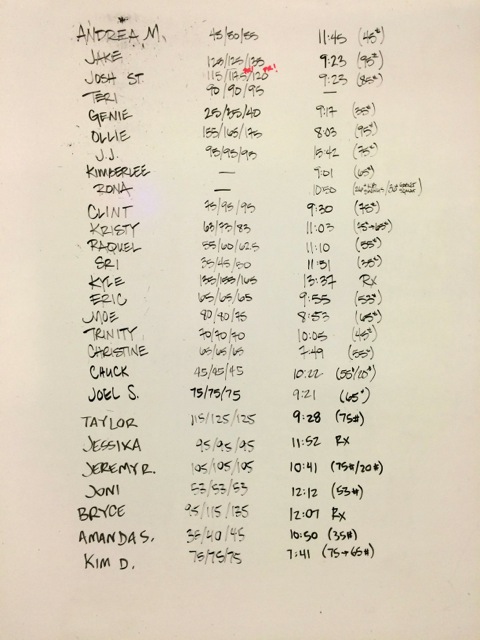 ANDREA M. 45/50/55 11:45 (45#)
JAKE 125/125/135 9:23 (95#)
JOSH ST. 115/115/120 PR! 9:23 (85#)
TERI 90/90/95 —
GENIE 25/35/40 9:17 (35#)
OLLIE 155/165/175 8:03 (95#)
J.J. 95/95/95 15:42 (75#)
KIMBERLEE — 9:01 (65#)
RONA — 10:50
CLINT 75/95/95 9:30 (75#)
KRISTY 63/73/83 11:03 (75#→65#)
RAQUEL 55/60/62.5 11:10 (55#)
SRI 35/45/50 11:51 (35#)
KYLE 135/155/165 13:37 RX
ERIC 65/65/65 9:55 (53#)
JMOE 80/80/75 8:53 (65#)
TRINITY 70/70/70 10:05 (45#)
CHRISTINE 65/65/65 7:49 (55#)
CHUCK 45/45/45 10:22 (55#/20#)
JOEL S. 75/75/75 9:21 (65#)
TAYLOR 115/125/125 9:28 (75#)
JESSIKA 95/95/95 11:52 RX
JEREMY R. 105/105/105 10:41 (75#/20#)
JONI 53/53/53 12:12 (53#)
BRYCE 95/115/135 12:07 RX
AMANDA S. 35/40/45 10:50 (35#)
KIM D. 75/75/75 7:41 (75→65#)